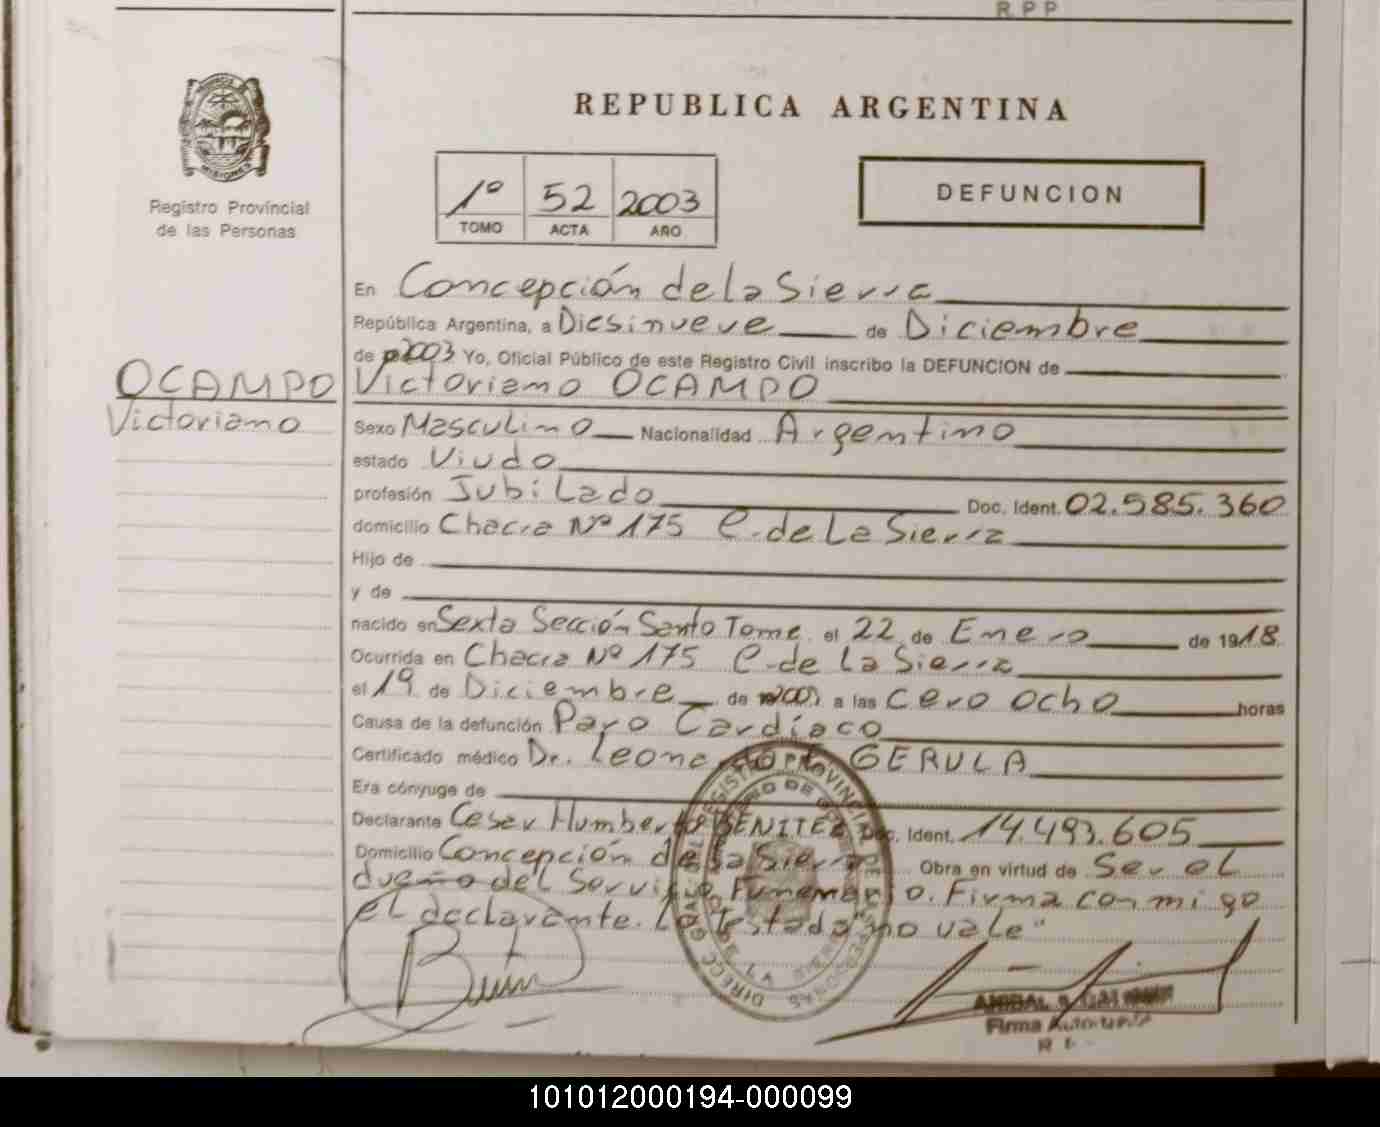 R. P. P.
REPUBLICA ARGENTINA
MISIONES
Registro Provincial
de las Personas
1º 52 2003
TOMO ACTA AÑO
DEFUNCION
En Concepción de la Sierra
República Argentina, a Diesinueve de Diciembre
de 2003 Yo, Oficial Público de este Registro Civil inscribo la DEFUNCION de
OCAMPO
Victoriano
Victoriano OCAMPO
Sexo Masculino Nacionalidad Argentino
estado Viudo
profesión Jubilado Doc. Ident. 02.585.360
domicilio Chacra Nº 175 C. de La Sierra
Hijo de
y de
nacido en Sexta Sección Santo Tome el 22 de Enero de 1918
Ocurrida en Chacra Nº 175 C. de La Sierra
el 19 de Diciembre de 2003 a las cero ocho horas
Causa de la defunción Paro Cardíaco
Certificado médico Dr. Leonardo GERULA
Era cónyuge de
Declarante Cesar Humberto BENITEZ Doc. Ident. 14.493.605
Domicilio Concepción de la Sierra Obra en virtud de Ser el
dueño del Servicio Funerario. Firma conmigo
el declarante. Lo Testado "no vale"
ANIBAL
Firma Autorizada
101012000194-000099